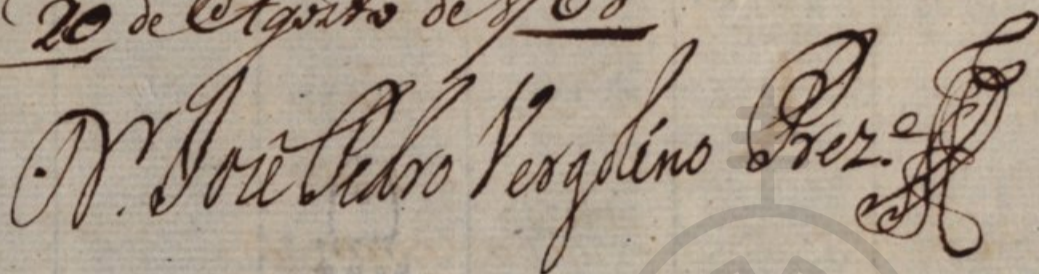 20 de Agosto de 1768
Fr. José Pedro Vergolino Prez.e